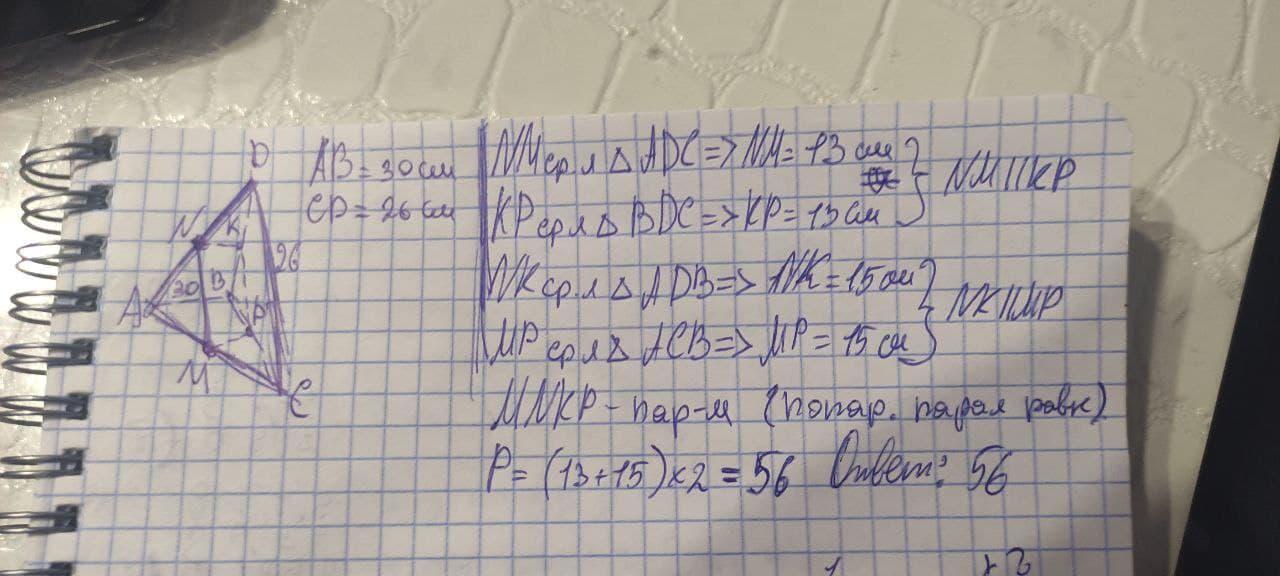 D
N
K
26
30
B
A
P
M
C
AB = 30 см
CD = 26 см
NM ср.л △ ADC => NM = 13 см
KP ср.л △ BDC => KP = 13 см
NM || KP
NK ср.л △ ADB => NK = 15 см
MP ср.л △ ACB => MP = 15 см
NK || MP
MNKP - пар-м (попар. парал равн)
P = (13+15)×2 = 56 Ответ: 56